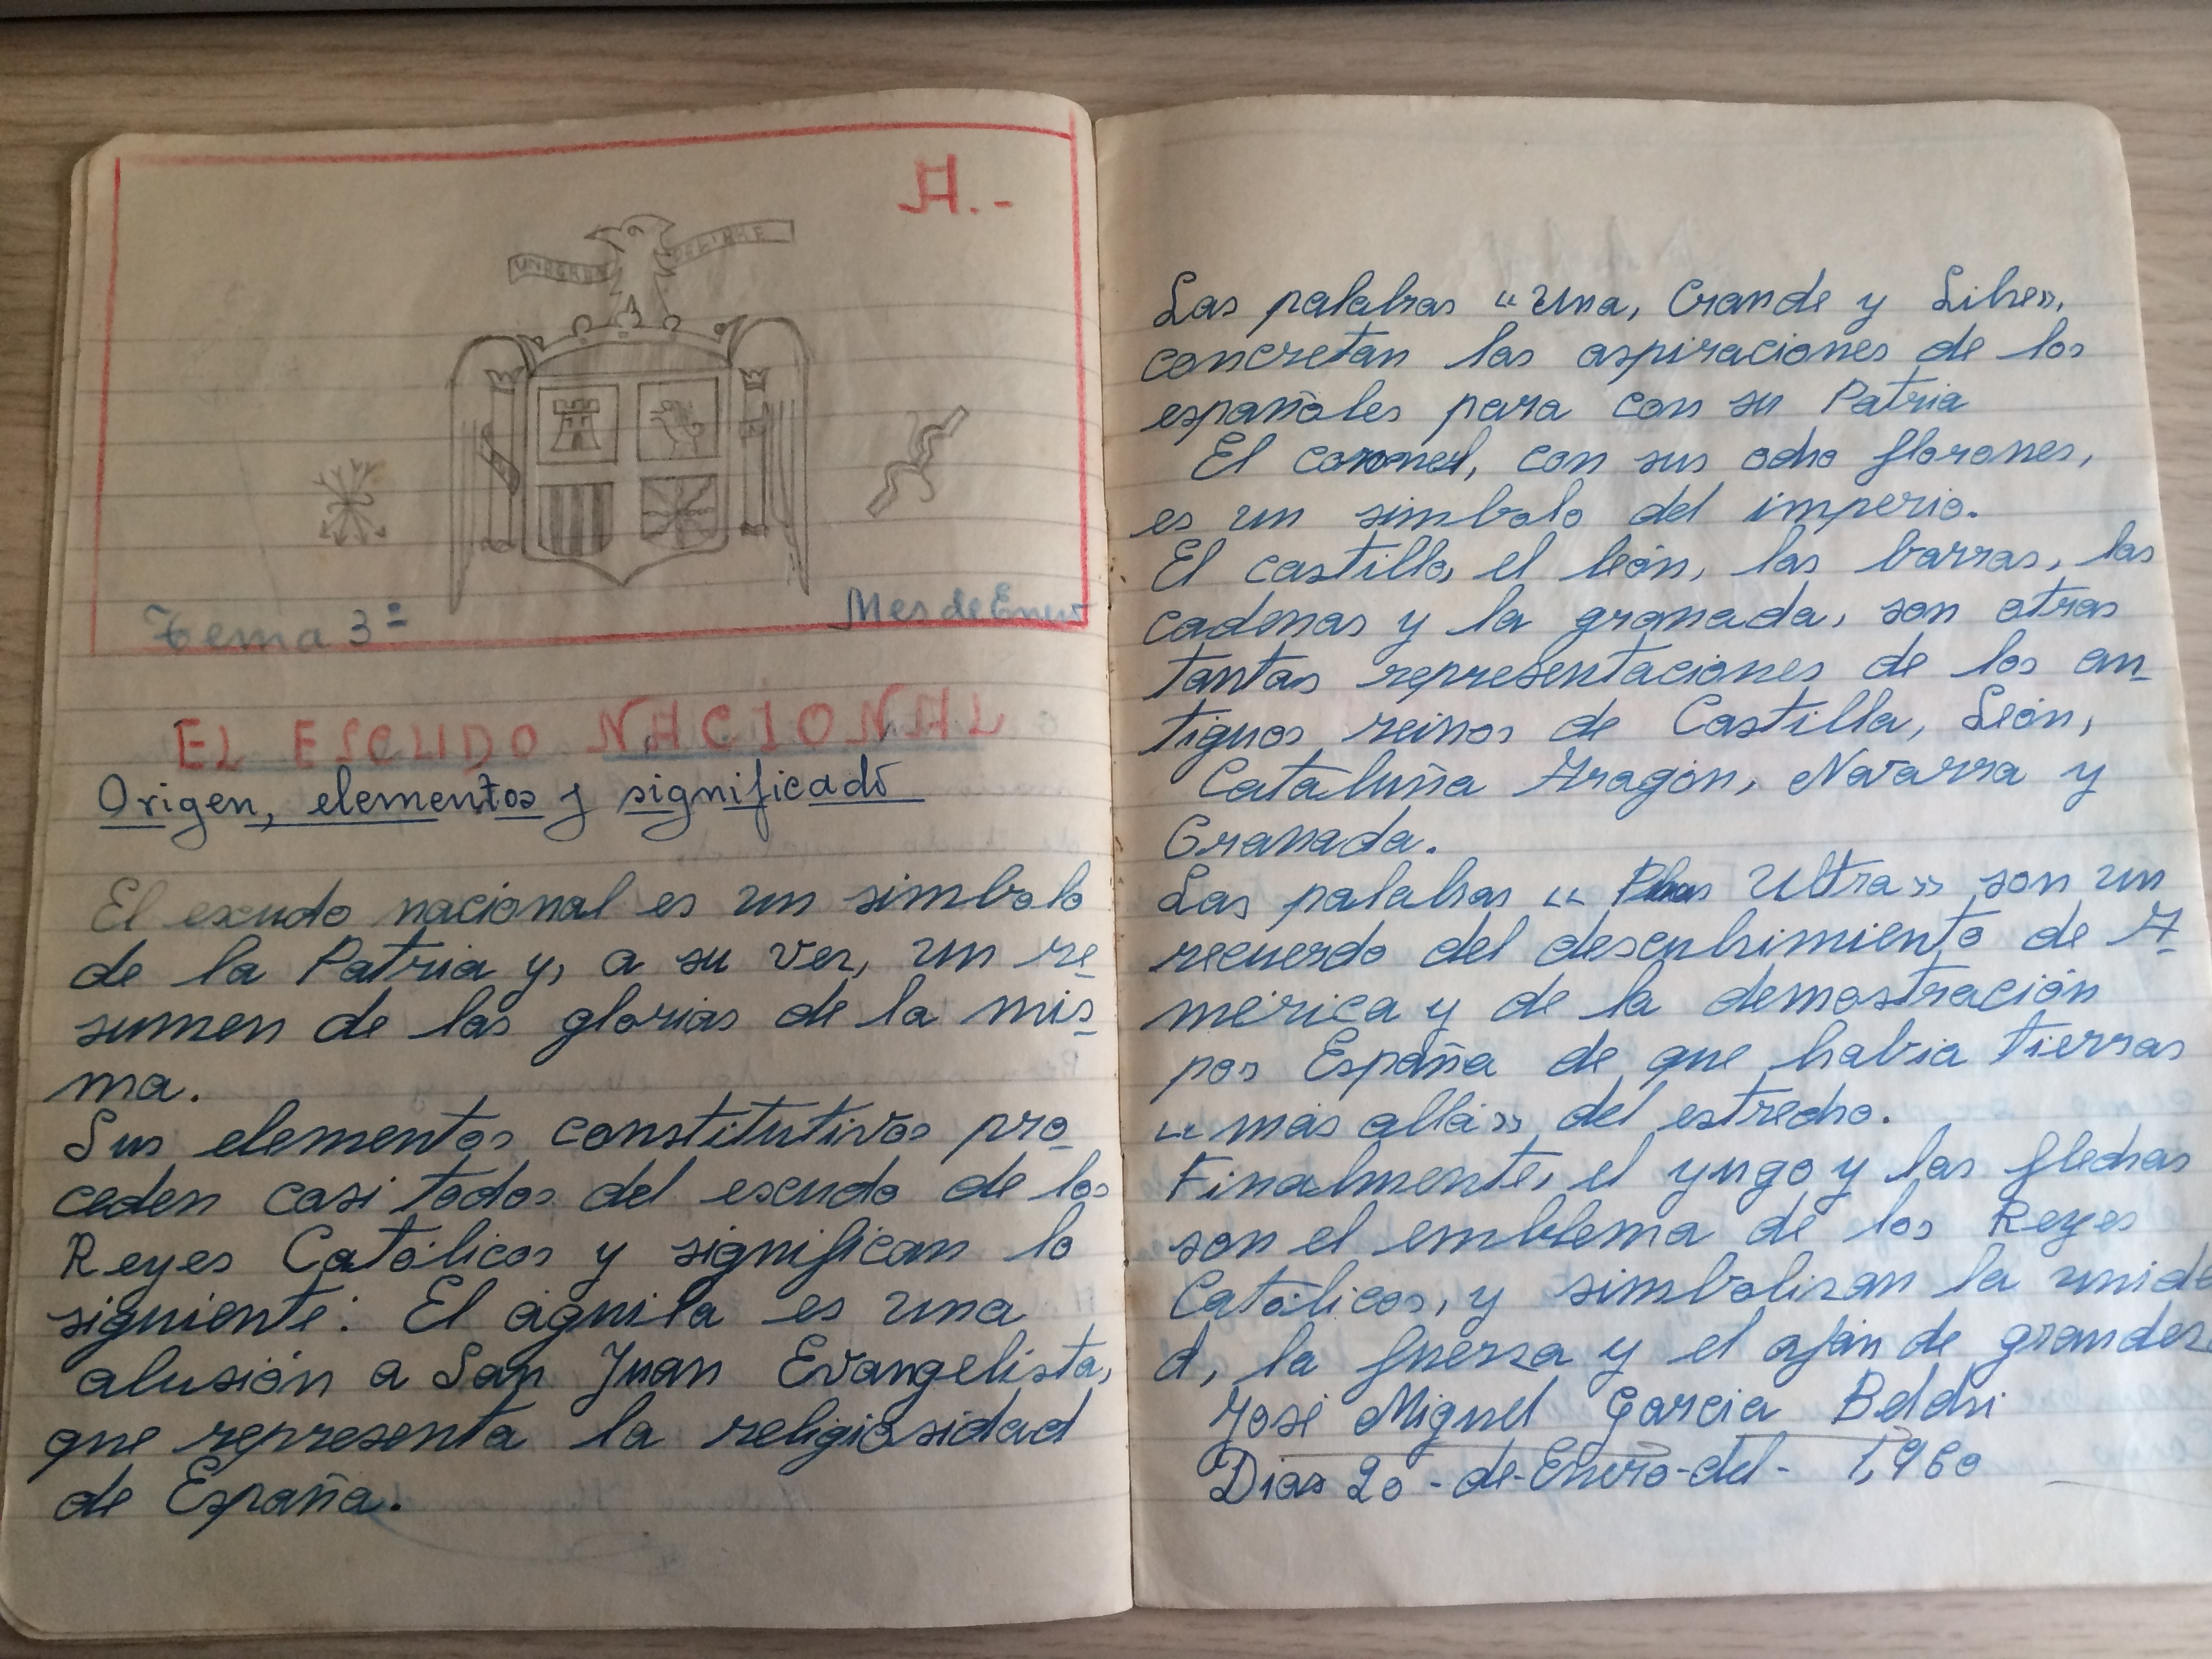 H.-
UNA GRAN
DE LIBRE
Tema 3º
Mes de Enero
EL ESCUDO NACIONAL
Origen, elementos y significado
El escudo nacional es un simbolo
de la Patria y, a su vez, un re
sumen de las glorias de la mis-
ma.
Sus elementos constitutivos pro
ceden casi todos del escudo de los
Reyes Católicos y significan lo
siguiente: El águila es una
alusión a San Juan Evangelista,
que representa la religiosidad
de España.
Las palabras "Una, Grande y Libre",
concretan las aspiraciones de los
españoles para con su Patria
El coronel, con sus ocho florones,
es un simbolo del imperio.
El castillo, el león, las barras, las
cadenas y la granada, son otras
tantas representaciones de los an-
tiguos reinos de Castilla, León,
Cataluña Aragón, Navarra y
Granada.
Las palabras «Plus Ultra» son un
recuerdo del descubrimiento de A
mérica y de la demostración
por España de que habia tierras
«más allá» del estrecho.
Finalmente, el yugo y las flechas
son el emblema de los Reyes
Católicos, y simbolizan la unida
d, la fuerza y el afán de grandez
José Miguel Garcia
Dias 20-de-Enero-del- 1,960